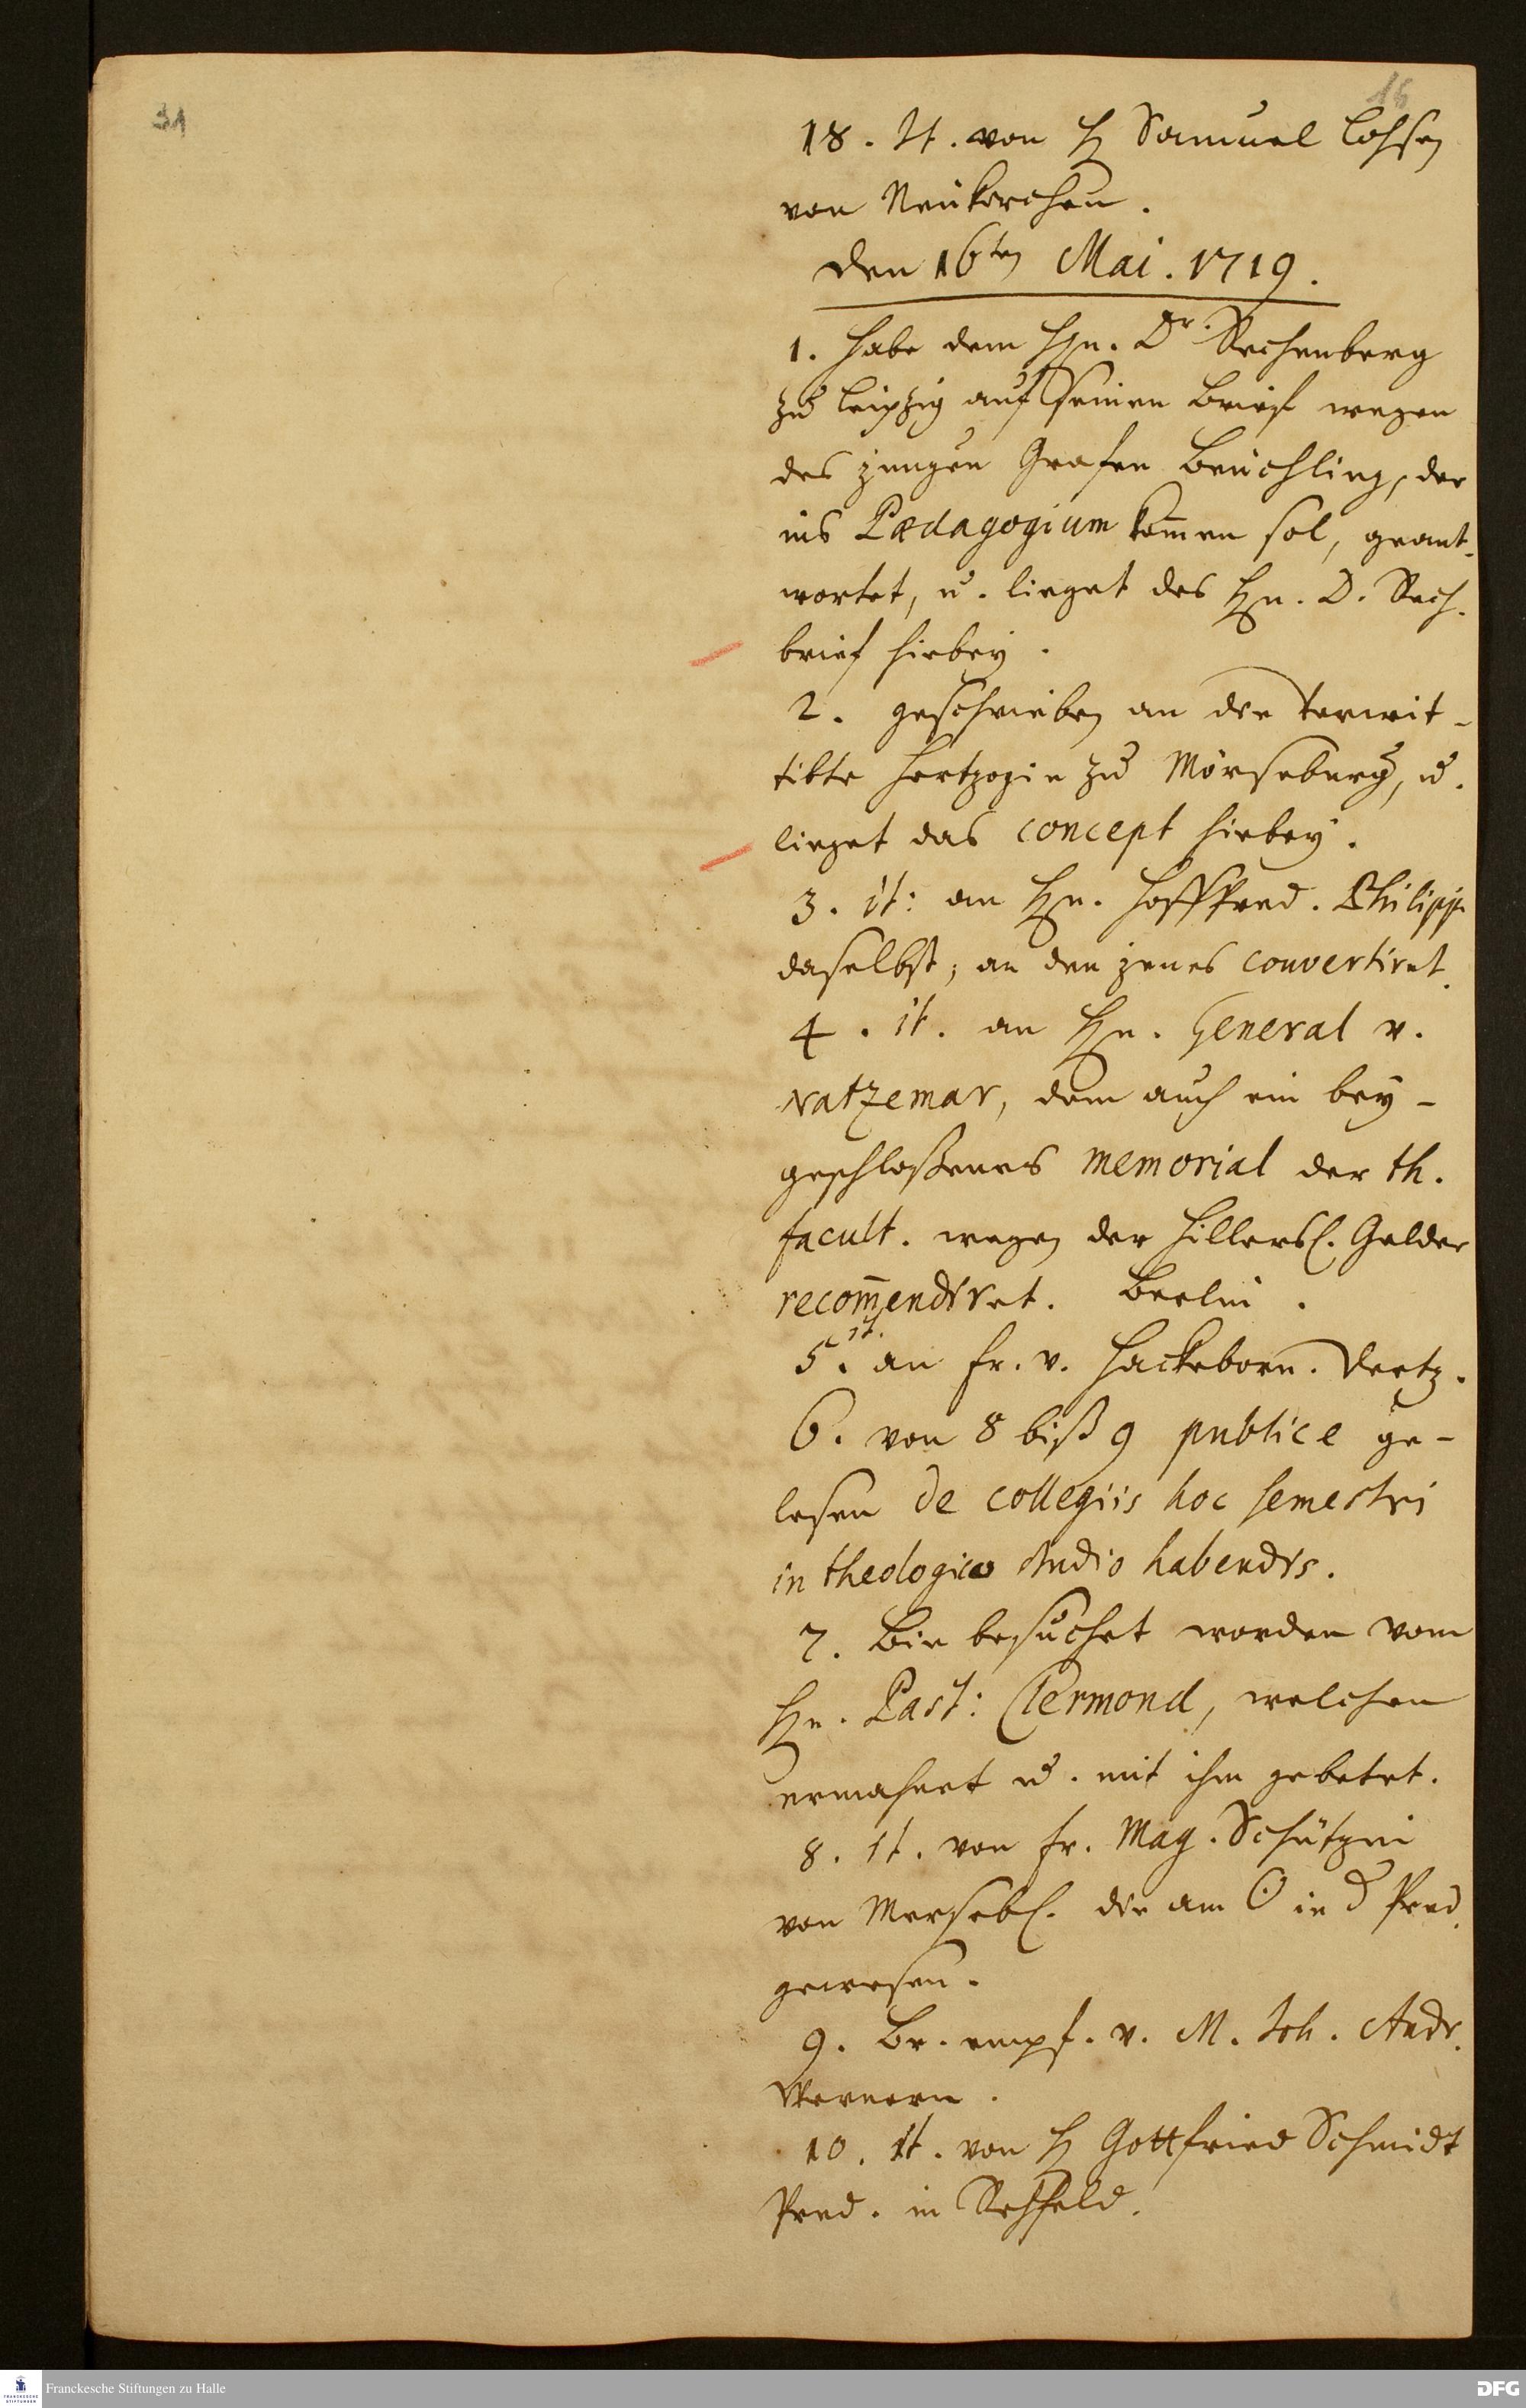 31
16
18. It. von H Samuel Lohsen
von Neukirchen.
den 16ten Mai. 1719.
1. Habe dem Hn. Dr. Rechenberg
zu Leipzig auf seinen brief wegen
des jungen Grafen Beuchling, der
ins Pædagogium kom̄en sol, geant-
wortet, u. lieget des Hn. D. Rech.
brief hiebey.
2. geschrieben an die verwit-
tibte Hertzogin zu Mörseburg, u.
lieget das concept hiebey.
3. it: an Hn. Hoffpred. Philippi
daselbst, an den jenes couvertiret.
4. it. an Hn. General v.
Natzemar, dem auch ein bey-
geschloßenes memorial der th.
facult. wegen der Hillersl. Gelder
recom̄endiret. Berlin.
5. it. an Fr. v. Hackeborn. Dertz.
6. von 8 biß 9 publice ge-
lesen de collegiis hoc semestri
in theologico studio habendis.
7. Bin besuchet worden vom
Hn. Past: Clermond, welchen
ermahnet u. mit ihm gebetet.
8. it. von Fr. Mag. Schützin
von Mersebl. die am ☉ in d Pred.
gewesen.
9. Br. empf. v. M. Joh. Andr.
Wernern.
10. it. von H Gottfried Schmidt
Pred. in Rehfeld.
Franckesche Stiftungen zu Halle
DFG